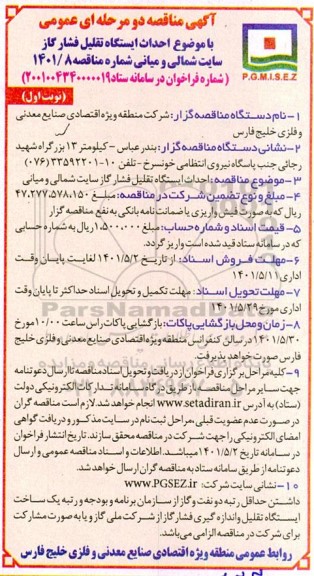 آگهی مناقصه دو مرحله ای عمومی
با موضوع احداث ایستگاه تقلیل فشار گاز
سایت شمالی و میانی شماره مناقصه ۱۴۰۱/۸
(شماره فراخوان در سامانه ستاد ۲۰۰۱۰۰۴۳۴۰۰۰۰۰۱۹)
P.G.M.I.S.E.Z
(نوبت اول)
۱- نام دستگاه مناقصه گزار: شرکت منطقه ویژه اقتصادی صنایع معدنی
و فلزی خلیج فارس
۲- نشانی دستگاه مناقصه گزار: بندرعباس - کیلومتر ۱۳ بزرگراه شهید
رجائی جنب پاسگاه نیروی انتظامی خونسرخ - تلفن ۱۰-۳۳۵۹۲۲۰۱ (۰۷۶)
۳- موضوع مناقصه: احداث ایستگاه تقلیل فشار گاز سایت شمالی و میانی
۴- مبلغ و نوع تضمین شرکت در مناقصه: مبلغ ۴۷.۲۷۷.۵۷۸.۱۵۰
ریال که به صورت فیش واریزی یا ضمانت نامه بانکی به نفع مناقصه گزار
۵- قیمت اسناد و شماره حساب: مبلغ ۱.۵۰۰.۰۰۰ ریال به شماره حسابی
که در سامانه ستاد قید شده است واریز گردد.
۶- مهلت فروش اسناد: از تاریخ ۱۴۰۱/۵/۲ لغایت پایان وقت
اداری ۱۴۰۱/۵/۱۱
۷- مهلت تحویل اسناد: مهلت تکمیل و تحویل اسناد حداکثر تا پایان وقت
اداری مورخ ۱۴۰۱/۵/۲۹
۸- زمان و محل بازگشایی پاکات: بازگشایی پاکات راس ساعت ۱۰:۰۰ مورخ
۱۴۰۱/۵/۳۰ در سالن کنفرانس منطقه ویژه اقتصادی صنایع معدنی و فلزی خلیج
فارس صورت خواهد پذیرفت.
۹- کلیه مراحل برگزاری فراخوان از دریافت و تحویل اسناد مناقصه تا ارسال دعوتنامه
جهت سایر مراحل مناقصه، از طریق درگاه سامانه تدارکات الکترونیکی دولت
(ستاد) به آدرس www.setadiran.ir انجام خواهد شد. لازم است مناقصه گران
در صورت عدم عضویت قبلی، مراحل ثبت نام در سایت مذکور و دریافت گواهی
امضای الکترونیکی را جهت شرکت در مناقصه محقق سازند. تاریخ انتشار فراخوان
در سامانه تاریخ ۱۴۰۱/۵/۲ میباشد. اطلاعات و اسناد مناقصه عمومی و ارسال
دعوتنامه از طریق سامانه ستاد به مناقصه گران ارسال خواهد شد.
۱۰- نشانی سایت شرکت: www.PGSEZ.ir
داشتن حداقل رتبه دو نفت و گاز از سازمان برنامه و بودجه و رتبه یک ساخت
ایستگاه تقلیل و اندازه گیری فشار گاز از شرکت ملی گاز و یا به صورت مشارکت
برای شرکت در مناقصه الزامی می باشد.
روابط عمومی منطقه ویژه اقتصادی صنایع معدنی و فلزی خلیج فارس